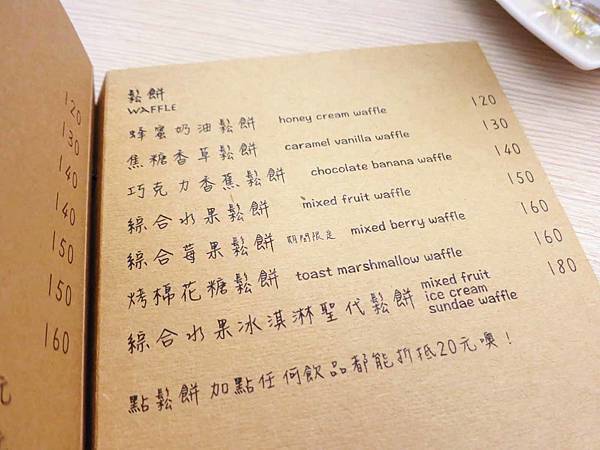 120
130
140
140
150
150
160
鬆餅
WAFFLE
蜂蜜奶油鬆餅 honey cream waffle 120
焦糖香草鬆餅 caramel vanilla waffle 130
巧克力香蕉鬆餅 chocolate banana waffle 140
綜合水果鬆餅 mixed fruit waffle 150
綜合莓果鬆餅 期間限定 mixed berry waffle 160
烤棉花糖鬆餅 toast marshmallow waffle 160
綜合水果冰淇淋聖代鬆餅 mixed fruit
ice cream
sundae waffle 180
點鬆餅加點任何飲品都能折抵20元噢！